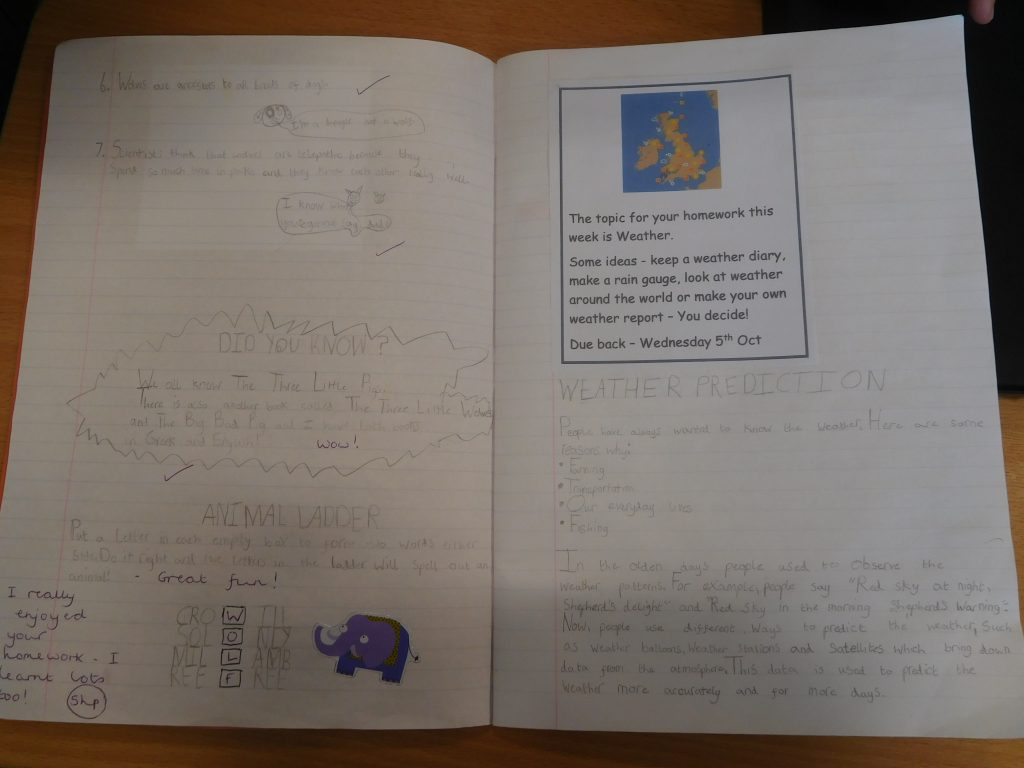 6. Wolves are ancestors to all breeds of dogs.
I'm a beagle not a wolf
7. Scientists think that wolves are telepathic because they
spend so much time in packs and they know each other really well.
I know what
you're gonna say, dude!
DID YOU KNOW?
We all know The Three Little Pigs.
There is also another book called The Three Little Wolves
and The Big Bad Pig and I have both books
in Greek and English!
WOW!
ANIMAL LADDER
Put a letter in each empty box to form two words either
side. Do it right and the letters in the ladder will spell out an
animal!
- Great fun!
I really
enjoyed
your
homework - I
learnt lots
too!
Shp
CRO W ILL
SOL O NLY
MIL L AMB
REE F REE
The topic for your homework this
week is Weather.
Some ideas - keep a weather diary,
make a rain gauge, look at weather
around the world or make your own
weather report – You decide!
Due back – Wednesday 5th Oct
WEATHER PREDICTION
People have always wanted to know the weather. Here are some
reasons why:
• Farming
• Transportation
• Our everyday lives
• Fishing
In the olden days people used to observe the
weather patterns. For example, people say "Red sky at night,
Shepherd's delight" and "Red Sky in the morning Shepherd's Warning".
Now, people use different ways to predict the weather, such
as weather balloons, weather stations and satellites which bring down
data from the atmosphere. This data is used to predict the
weather more accurately and for more days.